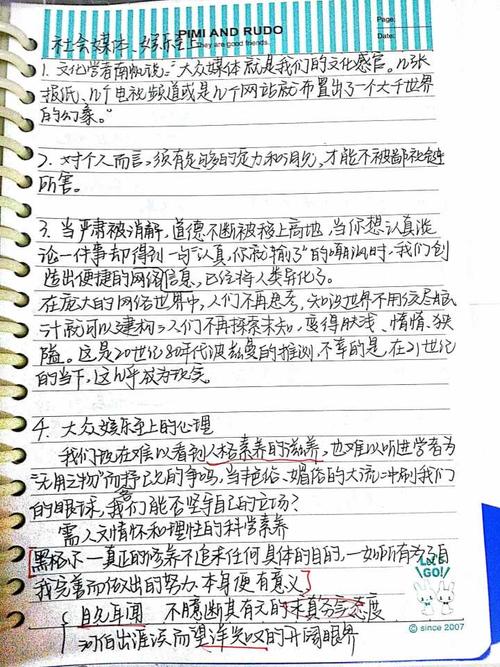 社会媒体、娱乐至上
PIMI AND RUDO
They are good friends.
Date:
1. 文化学者南帆说:“大众媒体就是我们的文化感官。几张
报纸、几个电视频道或是几个网站就布置出了一个大千世界
的幻象。”
2. 对个人而言,须有足够的定力和目光,才能不被鄙社会
所害。
3. 当严肃被消解,道德不断被移上高地,当你想认真谈
论一件事却得到一句“认真,你就输了”的嘲讽时,我们创
造出便捷的网络信息,已经将人类异化了。
在庞大的网络世界中,人们不再思考,知识世界不用绞尽脑
汁就可以建构,人们不再探索未知,变得肤浅、惰情、狭
隘。这是20世纪80年代波兹曼的推测,不幸的是,在21世纪
的当下,这几乎成为现实。
4. 大众娱乐至上的心理
我们现在难以看到人格素养的滋养,也难以听进学者为
“无用之物”而抒己见的争鸣,当艳俗、媚俗的大流冲刷我们
的眼球,我们能否坚守自己的立场?
需人文情怀和理性的科学素养
黑格尔—真正的修养不追求任何具体的目的,一如所有为了自
我完善而做出的努力,本身便有意义
目见耳闻 不臆断其有无的求真务实态度
河伯出涯涘而望洋兴叹的开阔眼界
LET'S GO!
© since 2007